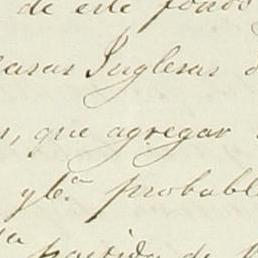 de este fondo
casas Inglesas
que agregar
yle.ª probabl
partida de